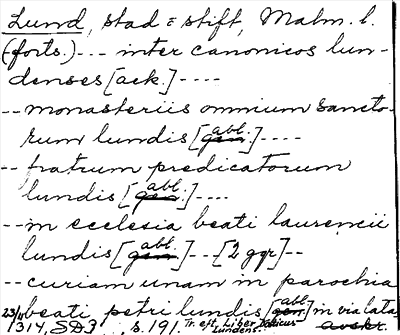 Lund, stad o stift, Malm. l.
(forts.) --- inter canonicos lun-
denses [ack.] ----
-- monasteriis omnium sancto-
rum lundis [gen. abl.] ----
-- fratrum predicatorum
lundis [gen. abl.] ----
-- in ecclesia beati laurencii
lundis [gen. abl.] -- [2 ggr] --
-- curiam unam in parochia
beati petri lundis [gen. abl.] in via lata
23/11 1314, SD3, s. 191. Tr. eft. Liber daticus lundens. avskr.